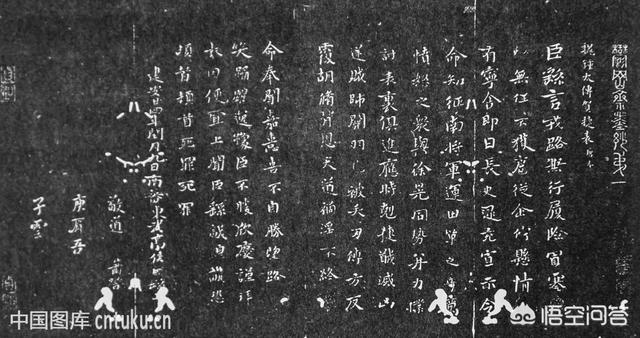 鬱岡齋墨妙第一
鍾太傅賀捷表
臣繇言戎路兼行履險冒寒
以無任不獲扈從企佇懸情
有寧舍即日長史逯充宣示令
命知征南將軍運田單之奇厲
憤怒之衆與徐晃同勢并力撲
討表裏俱進應時剋捷馘滅凶
逆賊帥關羽已被矢刃傅方反
覆胡脩背恩天道禍淫不終厥
命奉聞嘉憙喜不自勝望路
載笑踊躍逸豫臣不勝欣慶謹拜
表因便宜上聞臣繇誠惶誠恐
頓首頓首死罪死罪
建安廿四年閏月九日南蕃東武亭侯臣繇
敬道
庾肩吾
子雲
中国图库 cntuku.cn
悟空问答